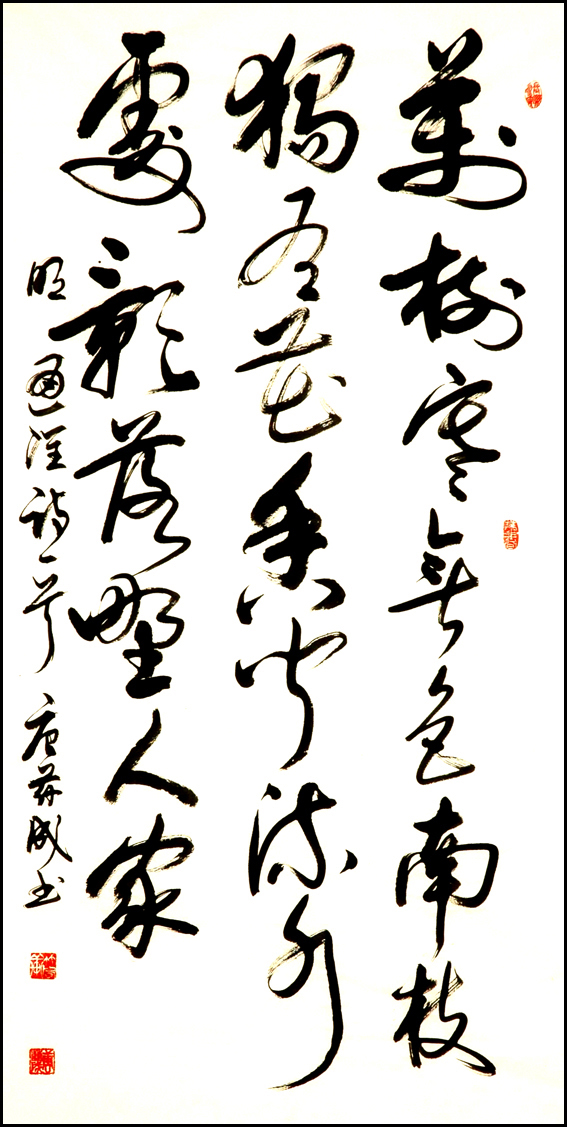 萬樹寒無色南枝
獨有花香聞流水
處影落野人家
明道源詩一首 成书